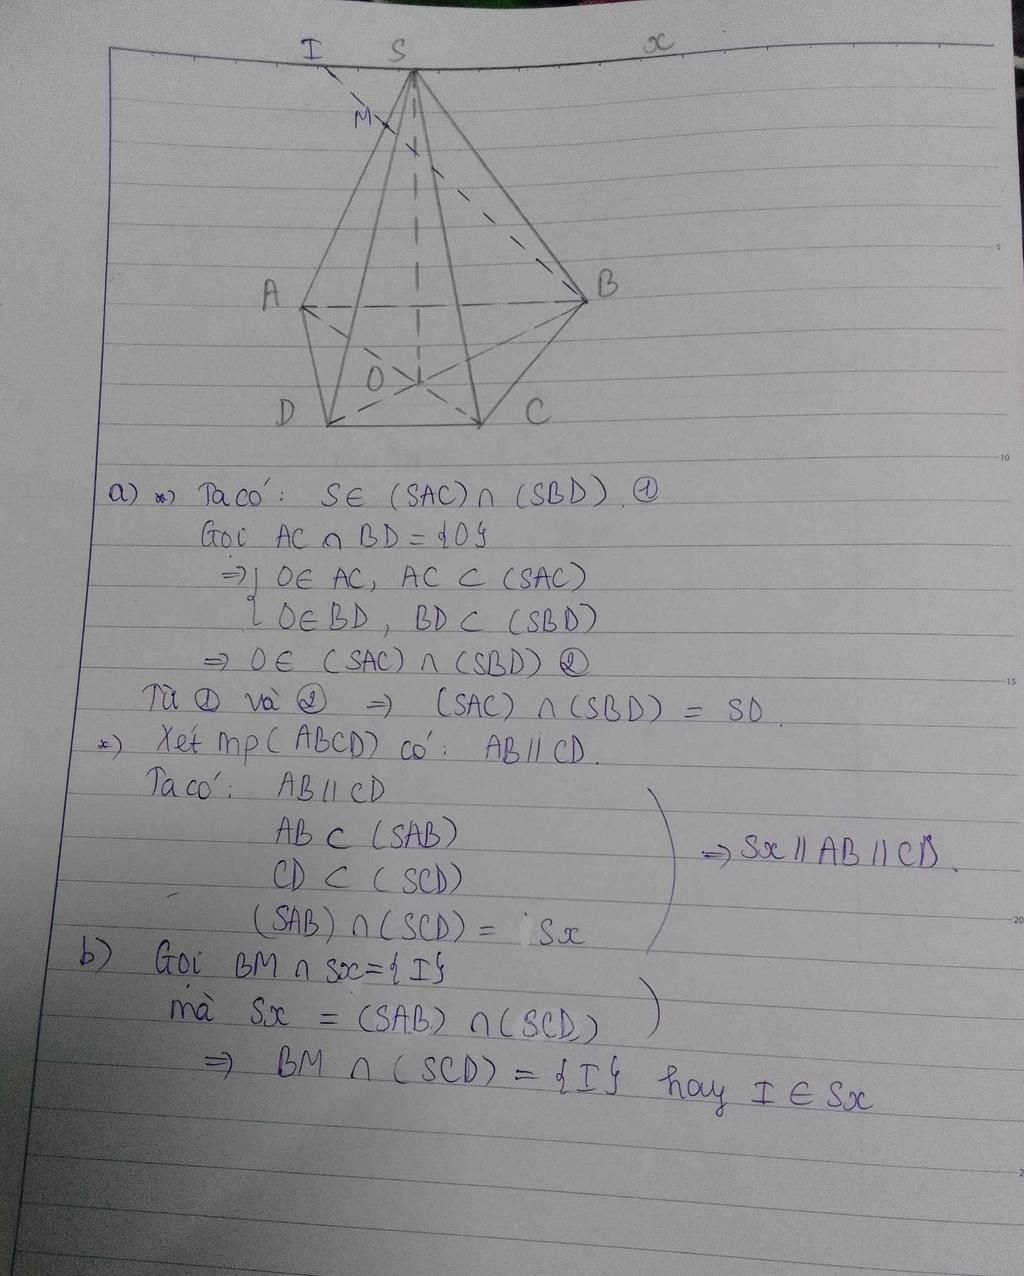 I S x
M
A B
O
D C
5
10
a) *) Ta có: S∈ (SAC)∩ (SBD). ①
Gọi AC ∩ BD = {O}
⇒ { O∈ AC, AC ⊂ (SAC)
O∈ BD, BD ⊂ (SBD)
⇒ O∈ (SAC) ∩ (SBD) ②
15
Từ ① và ② ⇒ (SAC) ∩ (SBD) = SO.
*) Xét mp(ABCD) có: AB // CD.
Ta có: AB // CD
AB ⊂ (SAB)
⇒ Sx // AB // CD.
CD ⊂ (SCD)
20
(SAB) ∩ (SCD) = Sx
b) Gọi BM ∩ Sx = {I}
mà Sx = (SAB) ∩ (SCD)
⇒ BM ∩ (SCD) = {I} hay I ∈ Sx